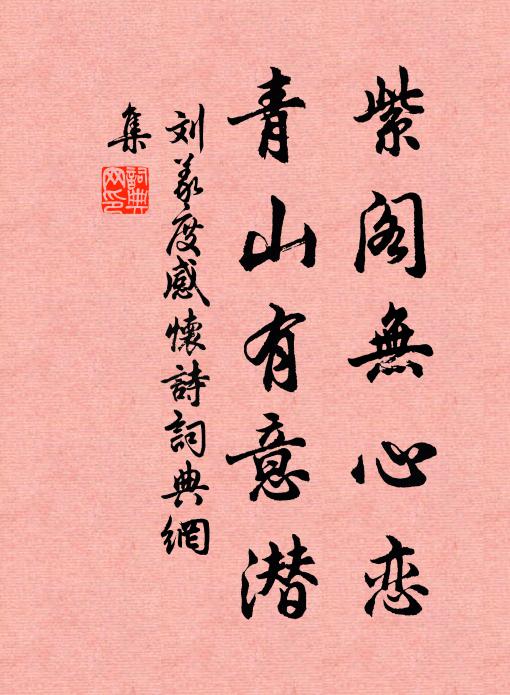 紫阁無心恋
青山有意潜
刘羲度感懷詩詞典網
集
詞典
网印